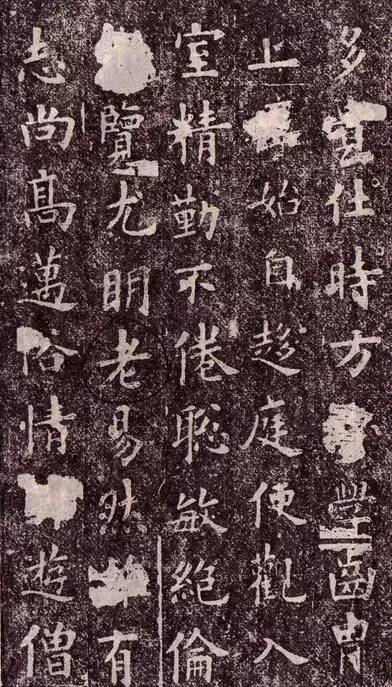 多仕時方學齒胄
上始自趍庭便觀入
室精勤不倦聡敏絕倫
覽尤明老易然有
志尚髙邁俗情遊僧